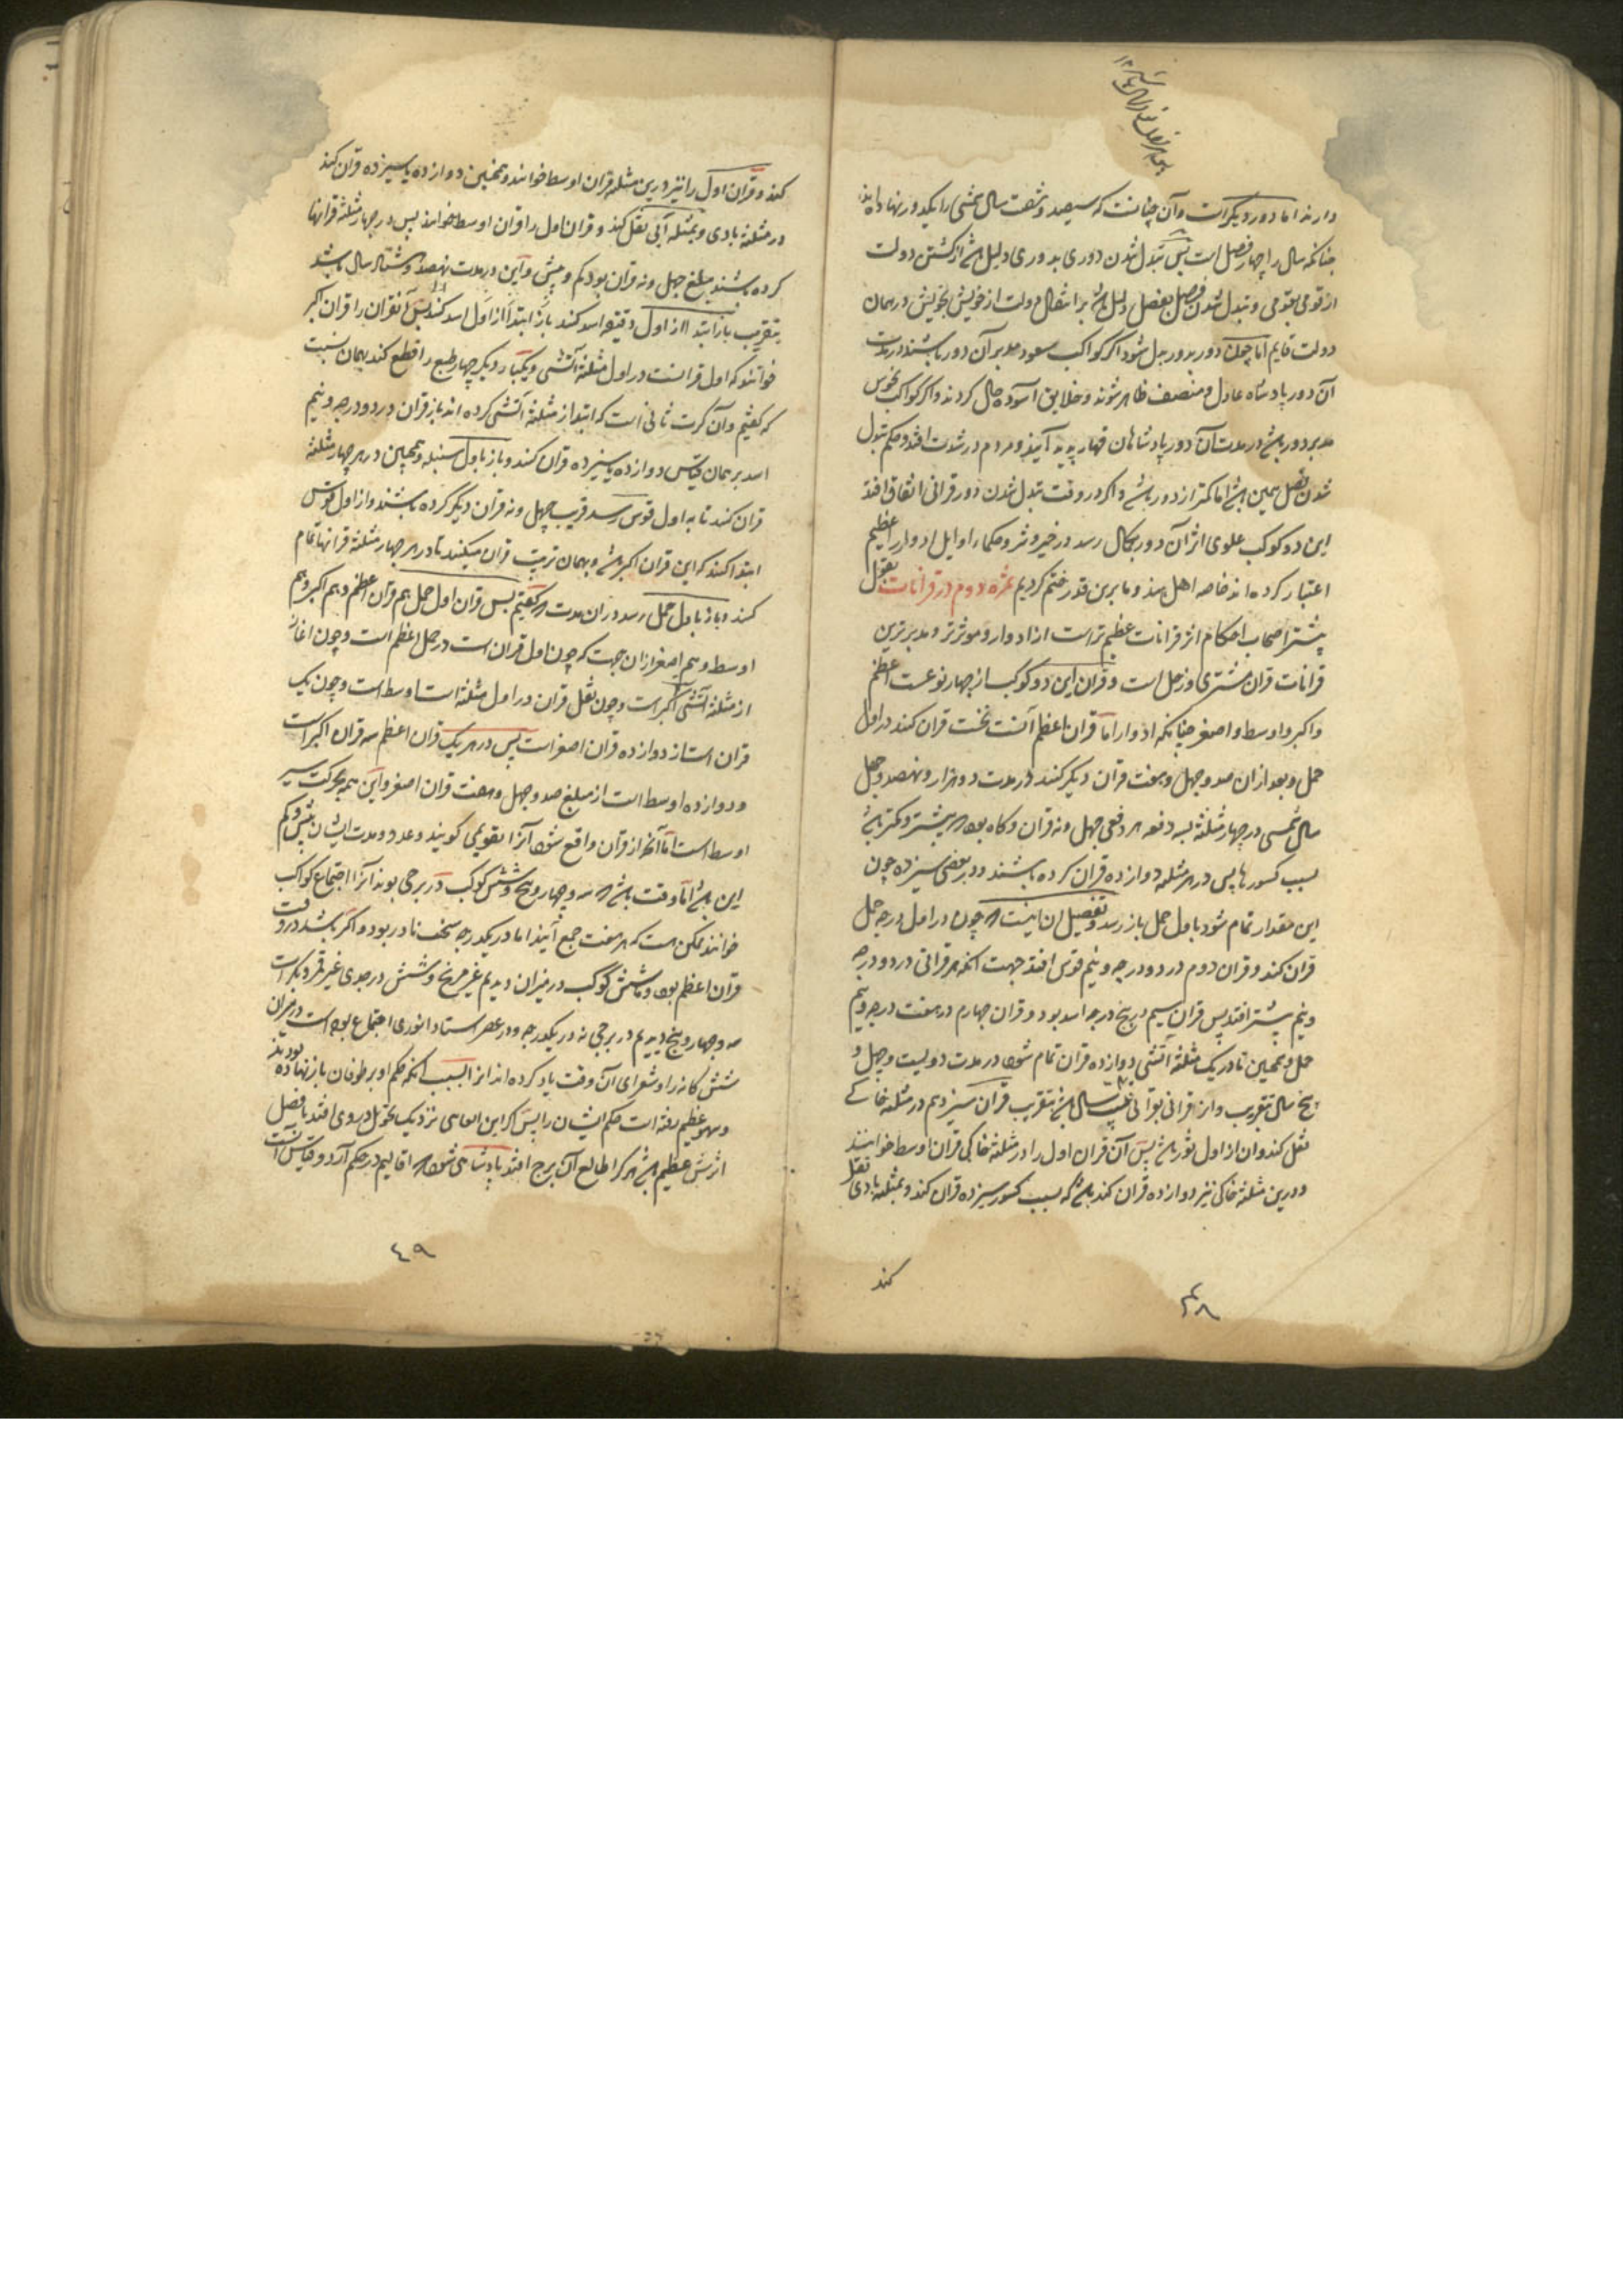 دارند اما دور دیگر است و آن چنانست که سیصد و شصت سال شمسی را یکدور نهاده اند
چنانکه سال را چهار فصل است پس تبدل شدن دوری بدوری دلیل باشد از گشتن دولت
از قومی بقومی و تبدل شدن فصل بفصل دلیل باشد بر انتقال دولت از خویش بخویش در همان
دولت قایم اما چون دور بدور بدل شود اگر کواکب سعود مدبر آن دور باشند در مدت
آن دور پادشاه عادل و منصف ظاهر شوند و خلایق آسوده حال گردند و اگر کواکب نحوس
مدبر دور باشد در مدت آن دور پادشاهان قهار پدید آیند و مردم در شدت افتد و حکم تبدل
شدن فصل همین باشد اما کمتر از دور باشد و اگر در وقت تبدل شدن دور قرانی اتفاق افتد
این دو کوکب علوی اثر آن دور بکمال رسد در خیر و شر و حکماء اوایل ادوار را عظیم
اعتبار کرده اند خاصه اهل هند و ما برین قدر ختم کردیم ثمره دوم در قرانات بقول
بیشتر اصحاب احکام اثر قرانات عظیم تر است از ادوار و موثرتر و مدبرترین
قرانات قران مشتری و زحل است و قران این دو کوکب از چهار نوعست اعظم
و اکبر و اوسط و اصغر چنانکه ادوار اما قران اعظم آنست نخست قران کنند در اول
حمل و بعد از ان صد و چهل و هفت قران دیگر کنند در مدت دو هزار و نهصد و چهل
سال شمسی در چهار مثلثه بسه دفعه هر دفعی چهل و نه قران و گاه بود که بیشتر و کمتر باشد
بسبب کسور ها پس در هر مثلثه دوازده قران کرده باشند و در بعضی سیزده چون
این مقدار تمام شود باول حمل باز رسد و تفصیل ان اینست که چون در اول درجه حمل
قران کنند و قران دوم در دو درجه و نیم قوس افتد جهت آنکه هر قرانی در دو درجه
و نیم پیشتر افتد پس قران سیم در پنج درجه اسد بود و قران چهارم در هفت درجه و نیم
حمل و همچنین تا در یک مثلثه آتشی دوازده قران تمام شود در مدت دویست و چهل و
پنج سال بتقریب و از قرانی بقرانی بیست سال باشد بتقریب قران سیزدهم در مثلثه خاکی
نقل کند و ان از اول ثور باشد پس آن قران اول را در مثلثه خاکی قران اوسط خوانند
و درین مثلثه خاکی نیز دوازده قران کند باشد که بسبب کسور سیزده قران کند و بمثلثه بادی نقل
کند
۴۸
کند و قران اول را نیز درین مثلثه قران اوسط خوانند و همچنین دوازده یا سیزده قران کند
در مثلثه بادی و بمثلثه آبی نقل کند و قران اول را قران اوسط خوانند پس در چهار مثلثه قرانها
کرده باشند مبلغ چهل و نه قران بود کم و بیش و این در مدت نهصد و هشتاد سال باشد
بتقریب باز ابتدا از اول دقیقه اسد کند باز ابتدا از اول اسد کند پس آنقران را قران اکبر
خوانند که اول قرانست در اول مثلثه آتشی و یکبار دیگر چهار طبع را قطع کند بهمان نسبت
که گفتیم و آن کرت ثانی است که ابتدا از مثلثه آتشی کرده اند باز قران در دو درجه و نیم
اسد بر همان قیاس دوازده یا سیزده قران کنند و باز باول سنبله و همچنین در هر چهار مثلثه
قران کنند تا به اول قوس رسد قریب چهل و نه قران دیگر کرده باشند و از اول قوس
ابتدا کنند که این قران اکبر باشد و بهمان ترتیب قران میکنند تا در هر چهار مثلثه قرانها تمام
کنند و باز باول حمل رسد در ان مدت که گفتیم پس قران اول حمل هم قران اعظم و هم اکبر و هم
اوسط و هم اصغر ازان جهت که چون اول قران است در حمل اعظم است و چون اغاز
از مثلثه آتشی اکبر است و چون نقل قران در اول مثلثه است اوسط است و چون یک
قران است از دوازده قران اصغر است پس در هر یک قران اعظم سه قران اکبر است
و دوازده اوسط است از مبلغ صد و چهل و هفت قران اصغر و این همه بحرکت سیر
اوسط است اما آنچه از قران واقع شود آنرا تقویمی گویند و عدد و مدت ایشان بیش و کم
این باشد اما وقت باشد که سه و چهار و پنج و شش کوکب در برجی بوند آنرا اجتماع کواکب
خوانند ممکن هست که هر هفت جمع آیند اما در یکدرجه سخت نادر بود و اگر باشد در وقت
قران اعظم بود و ما شش کوکب در میزان دیدیم غیر مریخ و شش در جدی غیر قمر دیگر است
سه و چهار و پنج دیدیم در برجی نه در یکدرجه و در عصر استاد انوری اجتماع بوده است در میزان
شش گانه را و شعرای آن وقت یاد کرده اند از السبب آنکه حکم او بر طوفان باز نهاده بودند
و سهو عظیم رفته است حکم ایشان را پس اگر این نزدیک تحویل دوری افتد یا فصل
اثرش عظیم باشد هر کرا طالع آن برج افتد پادشاهی شود که اقالیم در حکم آرد و قیاس آنست
۴۹